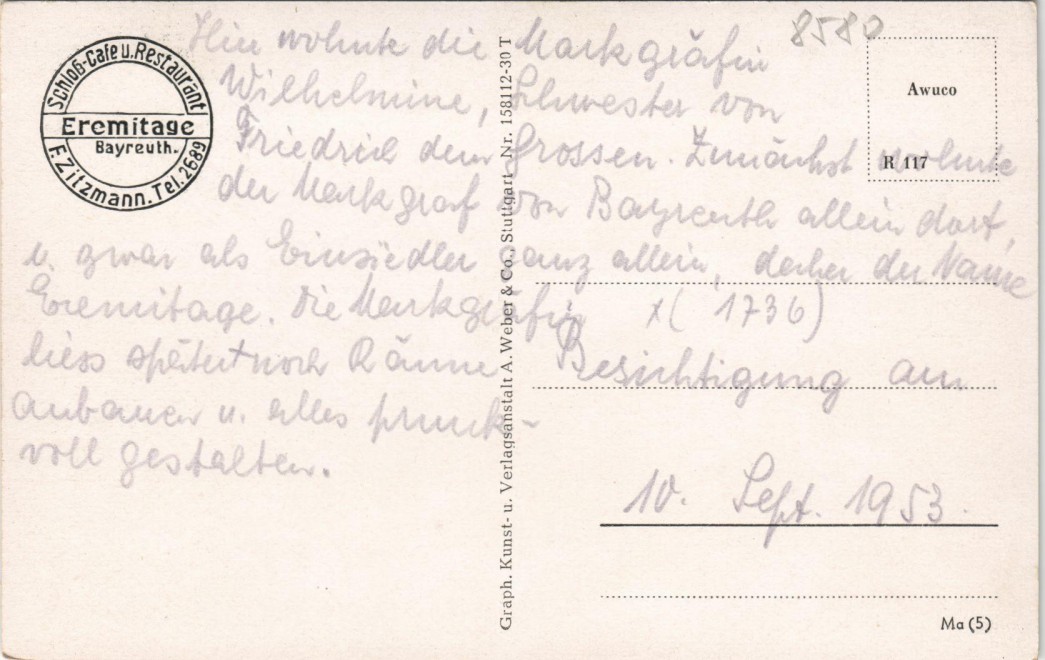 8580
Schloß-Cafe u. Restaurant
Eremitage
Bayreuth.
F. Zitzmann. Tel. 2689
Awuco
R 117
Hier wohnte die Markgräfin
Wilhelmine, Schwester von
Friedrich dem Grossen. Zunächst wohnte
der Markgraf von Bayreuth allein dort,
u. zwar als Einsiedler ganz allein, daher der Name
Eremitage. Die Markgräfin x( 1736)
liess später + noch Räume
anbauen u. alles prunk-
voll gestalten.
Besichtigung am
10. Sept. 1953.
Graph. Kunst- u. Verlagsanstalt A. Weber & Co., Stuttgart Nr. 158112-30 T
Ma (5)